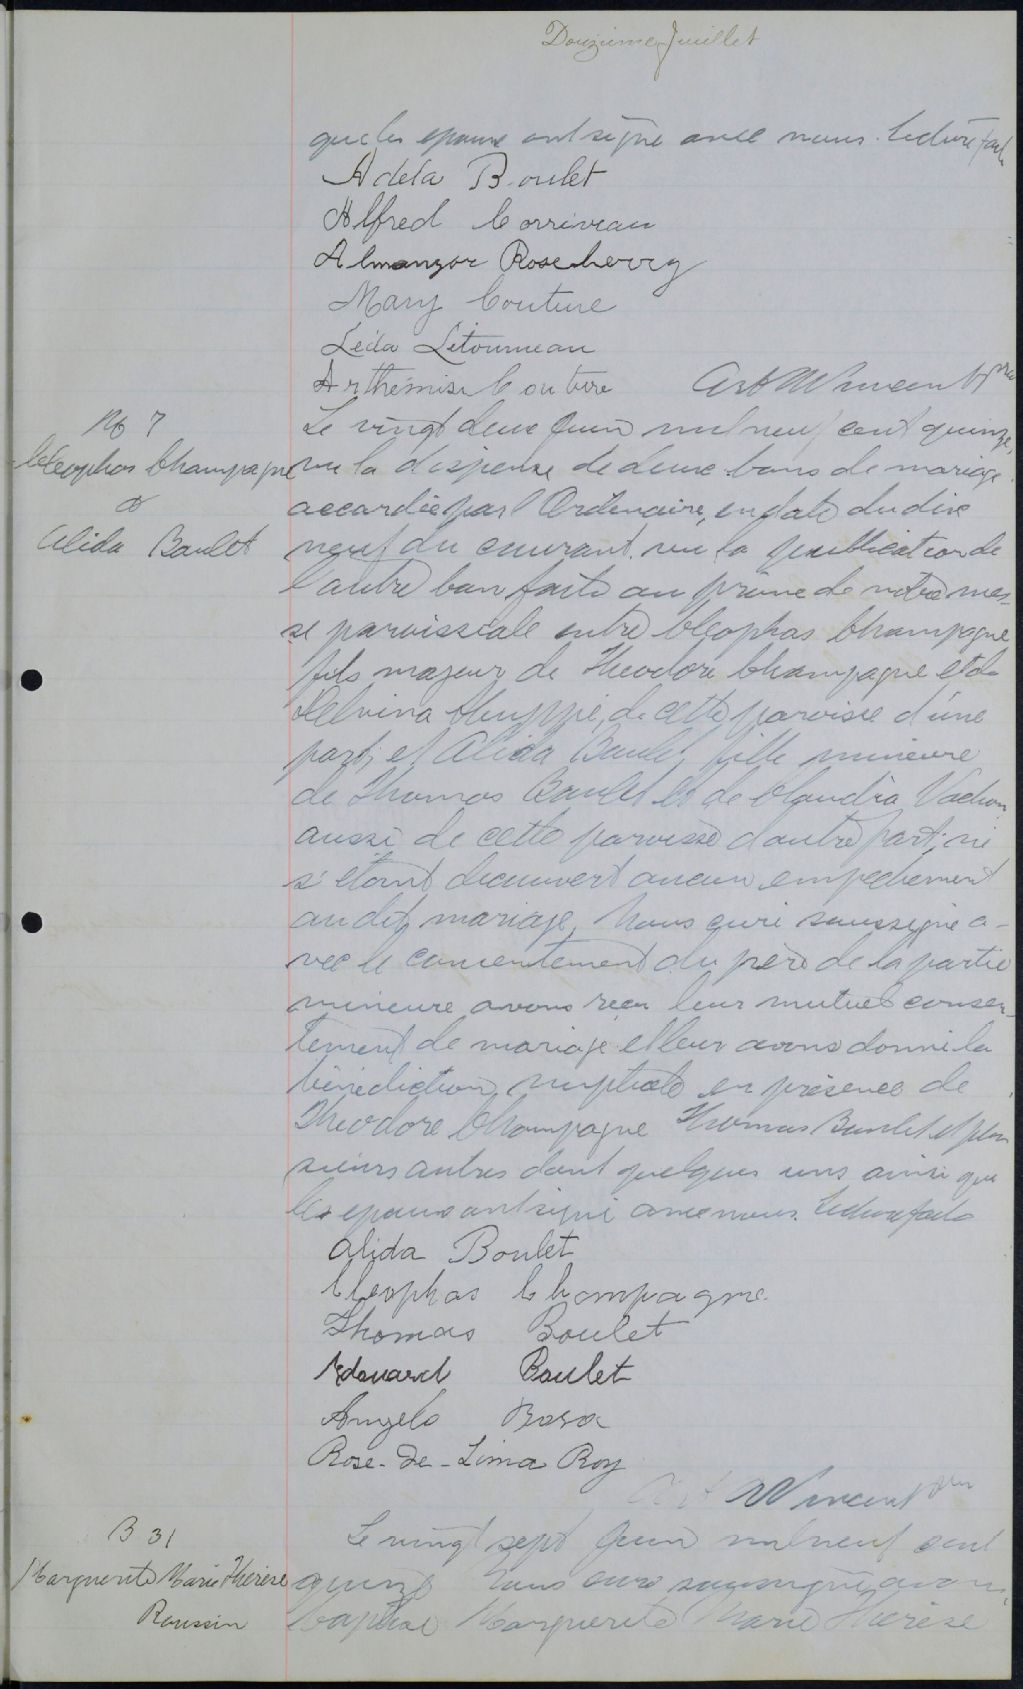 Douzième Juillet
que les epoux ont signé avec nous. Lecture faite
Adéla Boulet
Alfred Corriveau
Almanzor Roseberry
Mary Couture
Léda Létourneau
Arthémise Couture Vincent ptre
M 7
Le vingt deux Juin mil neuf cent quinze,
Cleophas Champagne
vu la dispense de deux bans de mariage
&
accordée par l'Ordinaire, en date du dix
Alida Boulet
neuf du courant, vu la publication de
l'autre ban faite au prône de notre mes-
se paroissiale entre Cleophas Champagne
fils majeur de Theodore Champagne et de
de cette paroisse d'une
part; et Alida Boulet, fille mineure
de Thomas Boulet et de Claudia Vachon
aussi de cette paroisse d'autre part; ne
s'étant decouvert aucun empechement
au dit mariage, Nous curé soussigné a-
vec le consentement du père de la partie
mineure avons reçu leur mutuel consen-
tement de mariage et leur avons donné la
bénédiction nuptiale en présence de
Théodore Champagne Thomas Boulet et plu
sieurs autres dont quelques uns ainsi que
les epoux ont signé avec nous. Lecture faite
Alida Boulet
Cleophas Champagne
Thomas Boulet
Edouard Boulet
Angelo Basa
Rose-de-Lima Roy
Vincent ptre
B 31
Le vingt sept Juin mil neuf cent
Marguerite Marie Thérèse
quinze Nous curé soussigné avons
Roussin
baptisé Marguerite Marie Thérèse